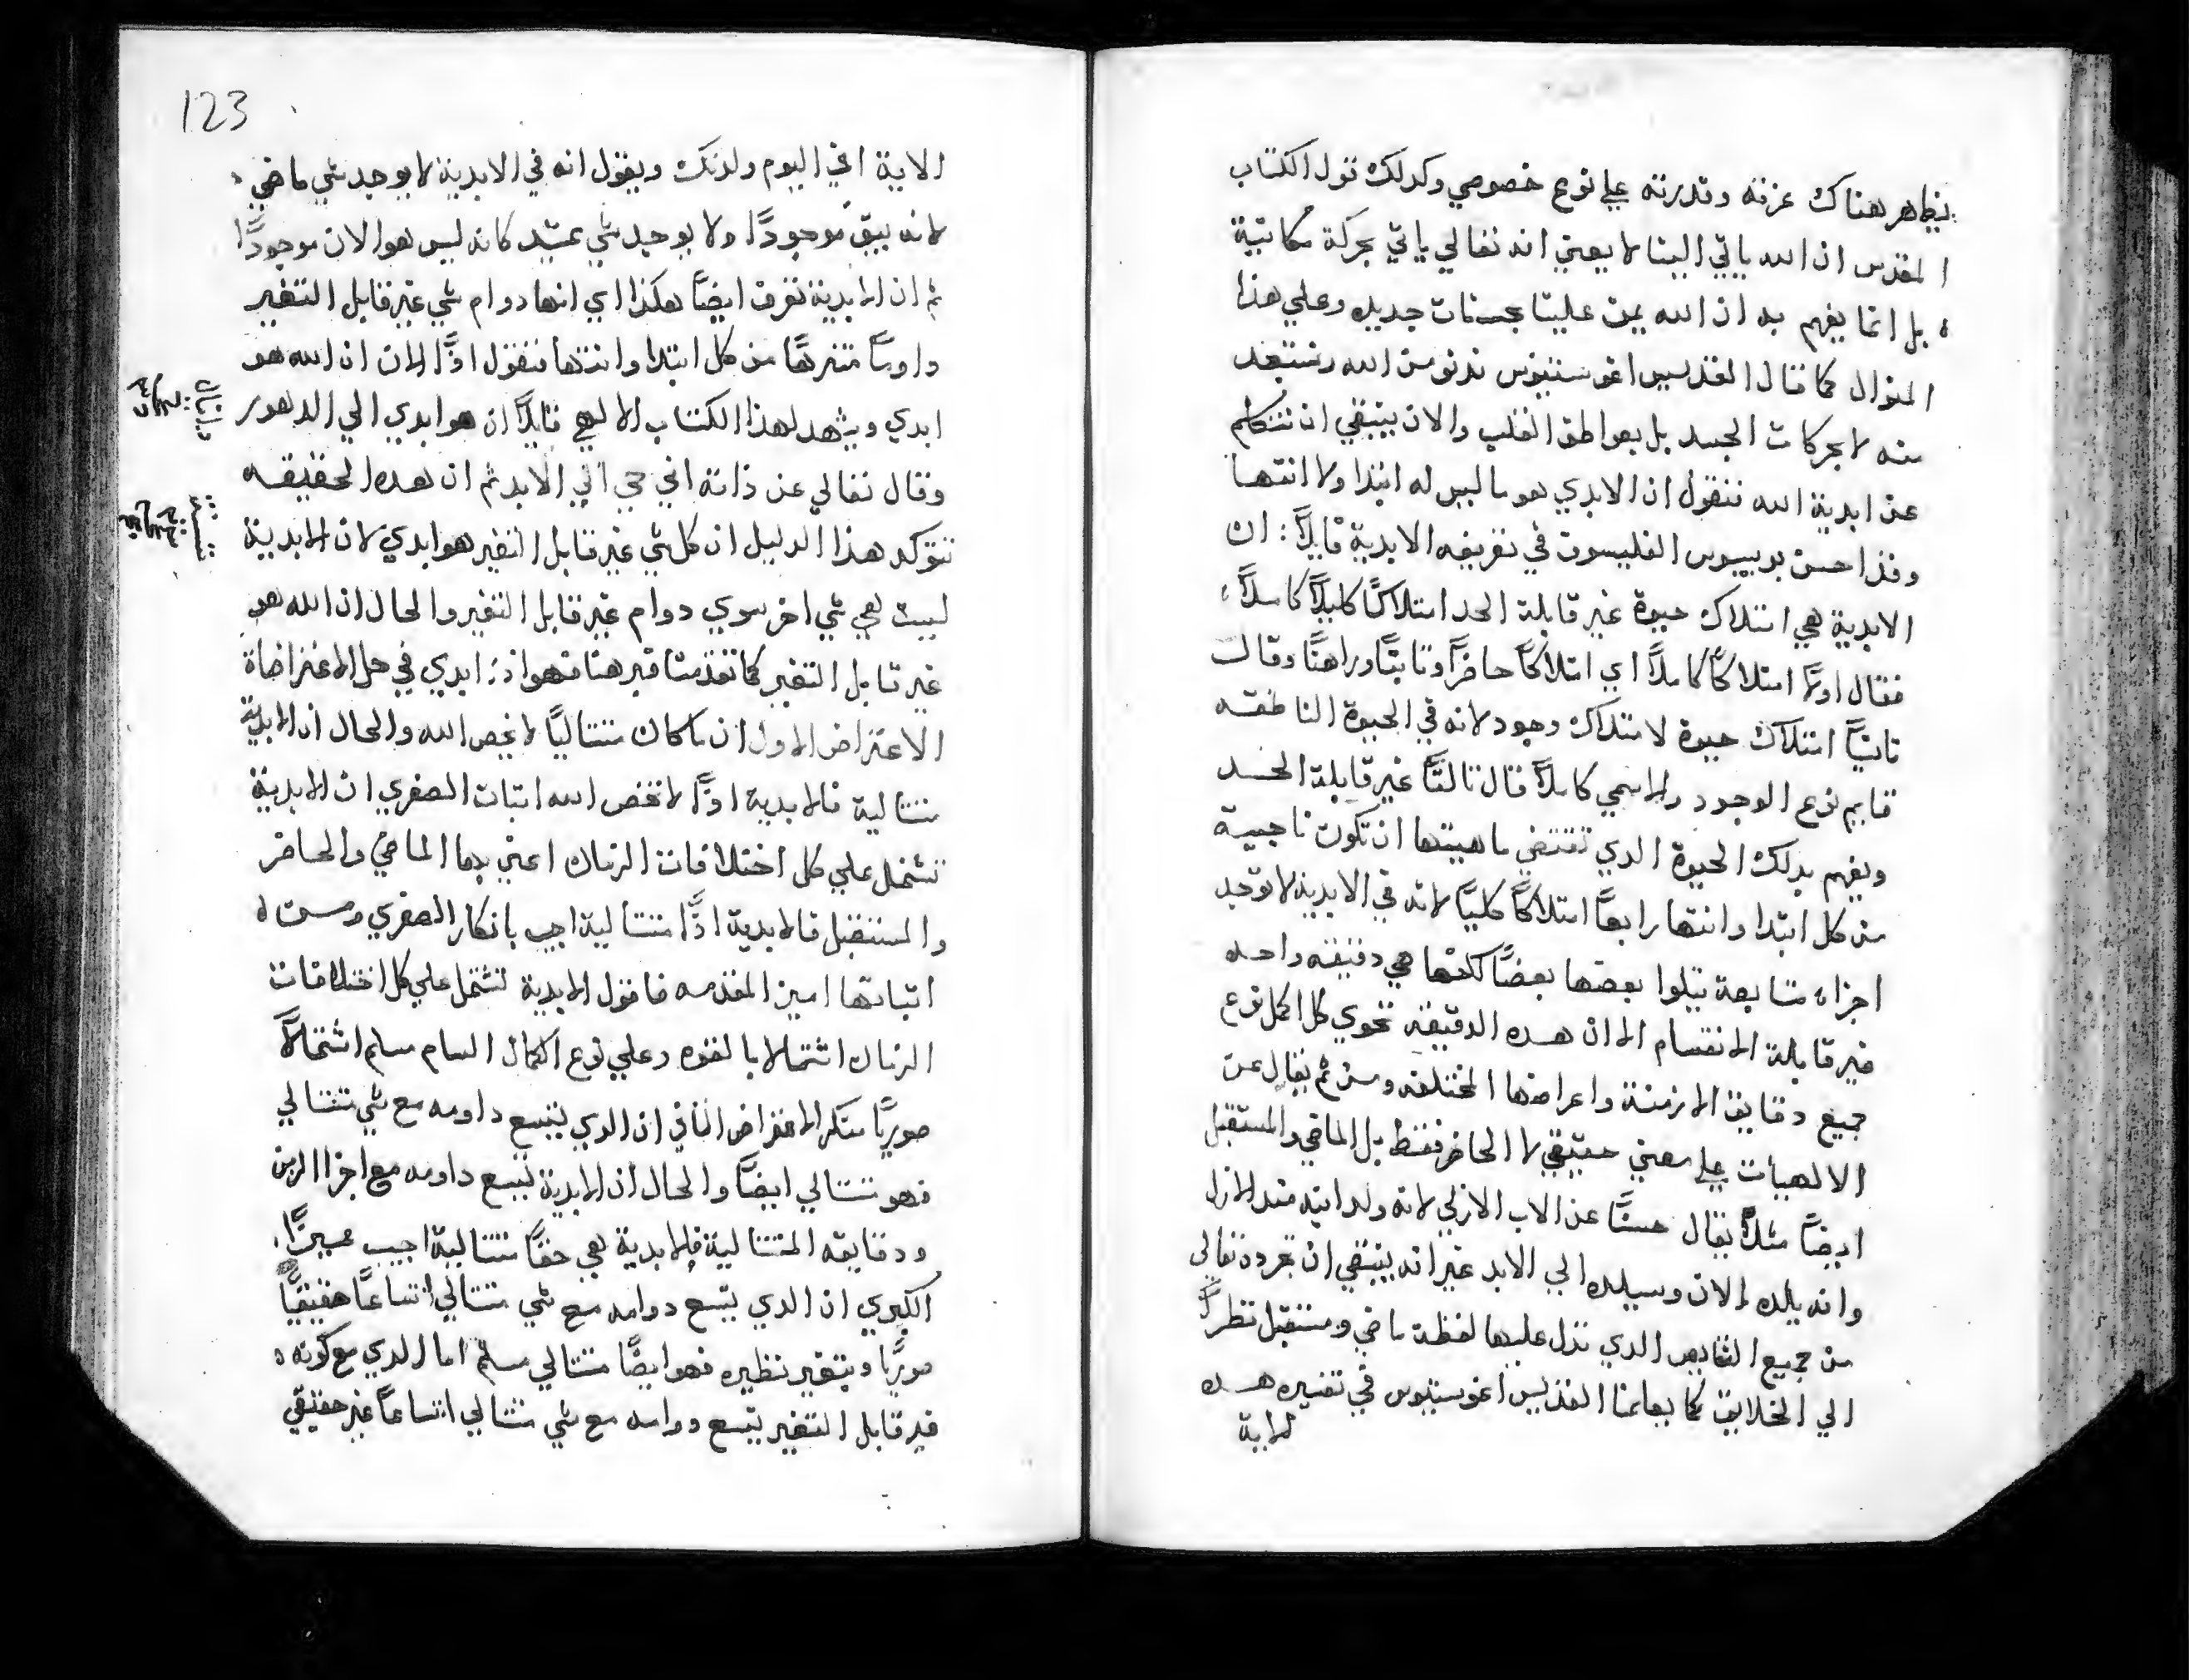 يظاهر هناك عزته وقدرته علي نوع خصوصي وكدلك قول الكتاب
المقدس ان الله ياتي الينا لا يعني انه تعالي ياتي بحركة مكانية
بل انما يفهم به ان الله يمن علينا بحسنات جديده وعلي هذا
المنوال كما قال القديس اغوسنتينوس ندنو من الله ونبتعد
منه لا بحركات الجسد بل بعواطف القلب والان ينبغي ان نتكلم
عن ابدية الله فنقول ان الابدي هو ما ليس له ابتدا ولا انتها
وقد احسن بوبيسيوس الفليسوف في تعريفه الابدية قايلاً: ان
الابدية هي امتلاك حيوة غير قابلة الحد امتلاكاً كلياً كاملاً،
فقال اولاً امتلاكاً كاملاً اي امتلاكاً حاضراً وثابتاً وراهناً وقال
ثانياً امتلاك حيوة لا متلاك وجود لانه في الحيوة الناطقه
قايم نوع الوجود والاسمي كاملاً قال ثالثاً غير قابلة الحد
ويفهم بدلك الحيوة الدي تقتضي ماهيتها ان تكون ناجية
من كل ابتدا وانتها رابعاً امتلاكاً كلياً لانه في الابدية لا توجد
اجزاء متتابعة يتلوا بعضها بعضاً لكنها هي دقيقه واحده
غير قابلة الانقسام الا ان هده الدقيقه تحوي كل اكمل نوع
جميع دقايق الازمنة واعراضها المختلفه ومن ثم يقال عن
الالهيات علي معني حقيقي لا الحاضر فقط بل الماضي والمستقبل
ايضاً مثلاً يقال حسناً عن الاب الازلي لانه ولد ابنه مند الازل
وانه يلده الان وسيلده الي الابد غير انه ينبغي ان نجرده تعالي
من جميع النقايص الدي تدل عليها لفظة ماضي ومستقبل نظراً
الي الخلايق كما يعلمنا القديس اغوستينوس في تفسيره هده
الاية
123
الاية اني اليوم ولدتك ويقول انه في الابدية لا يوجد شي ماضي
لانه يبق موجوداً ولا يوجد شي عتيد كانه ليس هو الان موجوداً
ثم ان الابدية تعرف ايضاً هكذا اي انها دوام شي غير قابل التغير
دواماً منزهاً من كل ابتدا وانتها فنقول اذاً الان ان الله هو
ابدي ويشهد لهذا الكتاب الالهي قايلاً ان هو ابدي الي الدهور
وقال تعالي عن ذاته اني حي الي الابد ثم ان هده الحقيقه
تتوكد هذا الدليل ان كل شي غير قابل التغير هو ابدي لان الابدية
ليست هي شي اخر سوي دوام غير قابل التغير والحال ان الله هو
غير قابل التغير كما تقدمنا فبرهنا فهو اذً ابدي في حل الاعتراضاة
الاعتراض الاول ان ما كان متتالياً لا يخص الله والحال ان الابدية
متتالية فالابدية اذاً لا تخص الله اتبات الصغري ان الابدية
تشتمل علي كل اختلافات الزمان اعني بها الماضي والحاضر
والمستقبل فالابدية اذاً متتالية اجيب بانكار الصغري ومن
اتباتها اميز المقدمه فاقول الابدية تشتمل علي كل اختلافات
الزمان اشتمالا بالقوه وعلي نوع الكمال السام مسلم اشتمالاً
صورياً منكر الاعتراض الثاني ان الدي يتسع دوامه مع شي متتالي
فهو متتالي ايضاً والحال ان الابدية تتسع دوامه مع اجزا الزمن
ودقايقه المتتالية فالابدية هي حقاً متتالية اجيب مميزاً
الكبري ان الدي يتسع دوامه مع شي متتالي اتساعاً حقيقياً
صورياً ويتغير نظيره فهو ايضاً متتالي مسلم اما الدي مع كونه
غير قابل التغير يتسع دوامه مع شي متتالي اتساعاً غير حقيقي